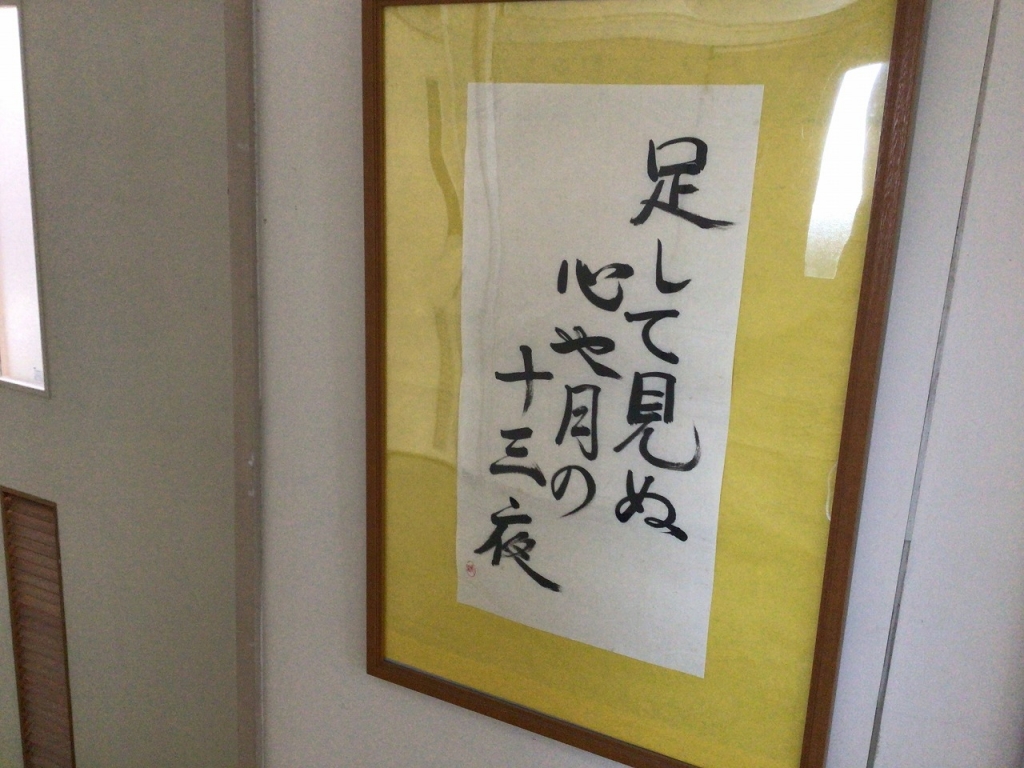 足して見ぬ
心や月の
十三夜